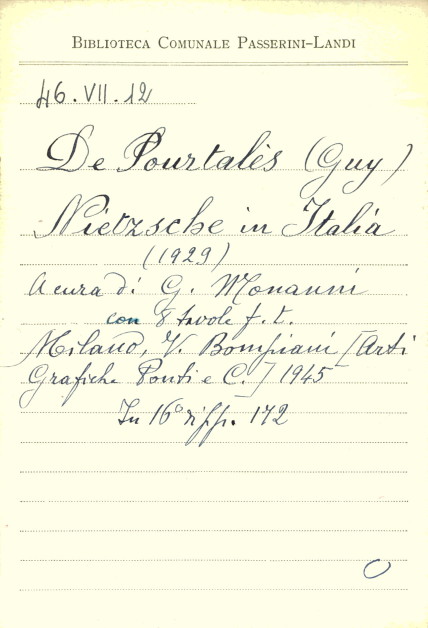 BIBLIOTECA COMUNALE PASSERINI-LANDI
46.VII.12
De Pourtalès (Guy)
Nietzsche in Italia
(1929)
A cura di G. Monanni
con 8 tavole f. t.
Milano, V. Bompiani [Arti
Grafiche Ponti e C.] 1945
In 16° di pp. 172